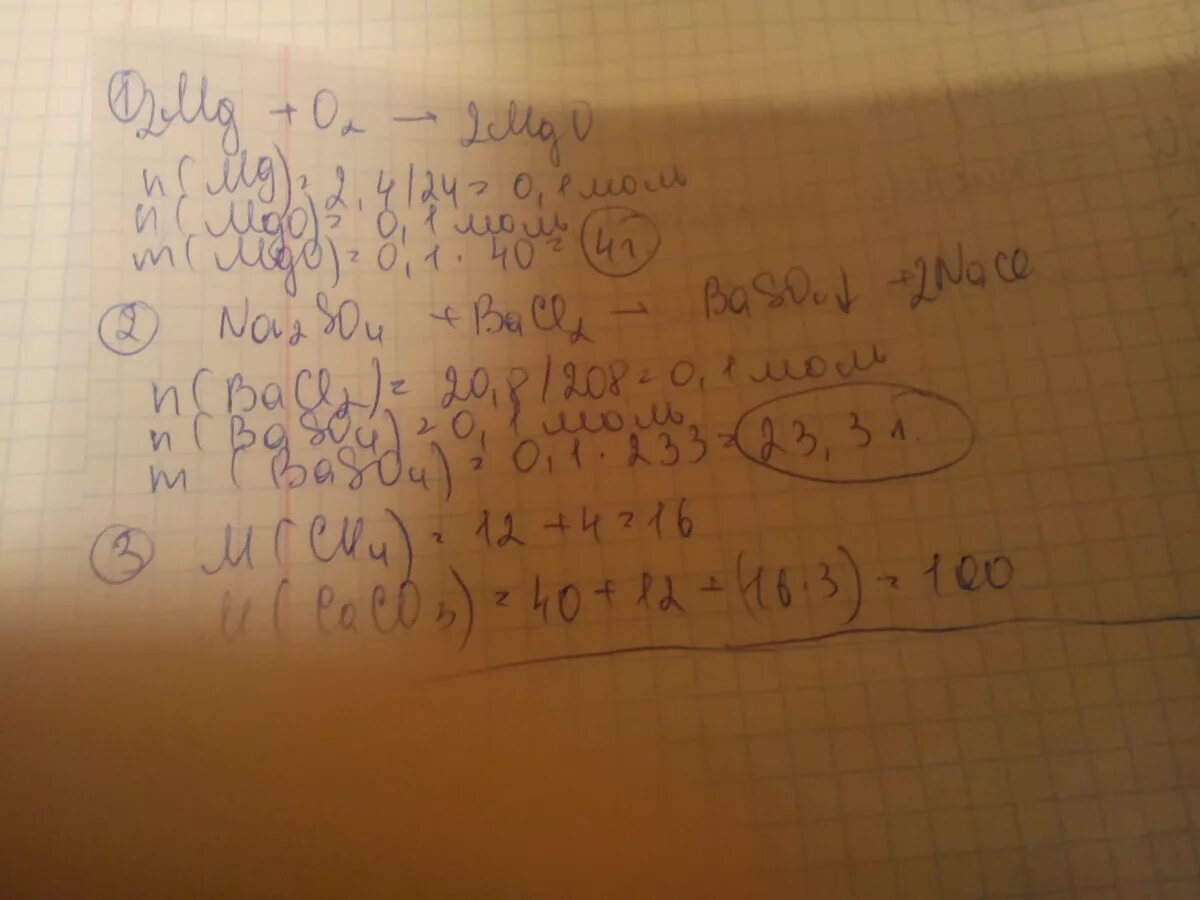 ① 2Mg + O₂ → 2MgO
n(Mg) = 2,4/24 = 0,1 моль
n(MgO) = 0,1 моль
m(MgO) = 0,1 · 40 = 4г
② Na₂SO₄ + BaCl₂ → BaSO₄↓ + 2NaCl
n(BaCl₂) = 20,8/208 = 0,1 моль
n(BaSO₄) = 0,1 моль
m(BaSO₄) = 0,1 · 233 = 23,3 г.
③ M(CH₄) = 12 + 4 = 16
M(CaCO₃) = 40 + 12 + (16·3) = 100